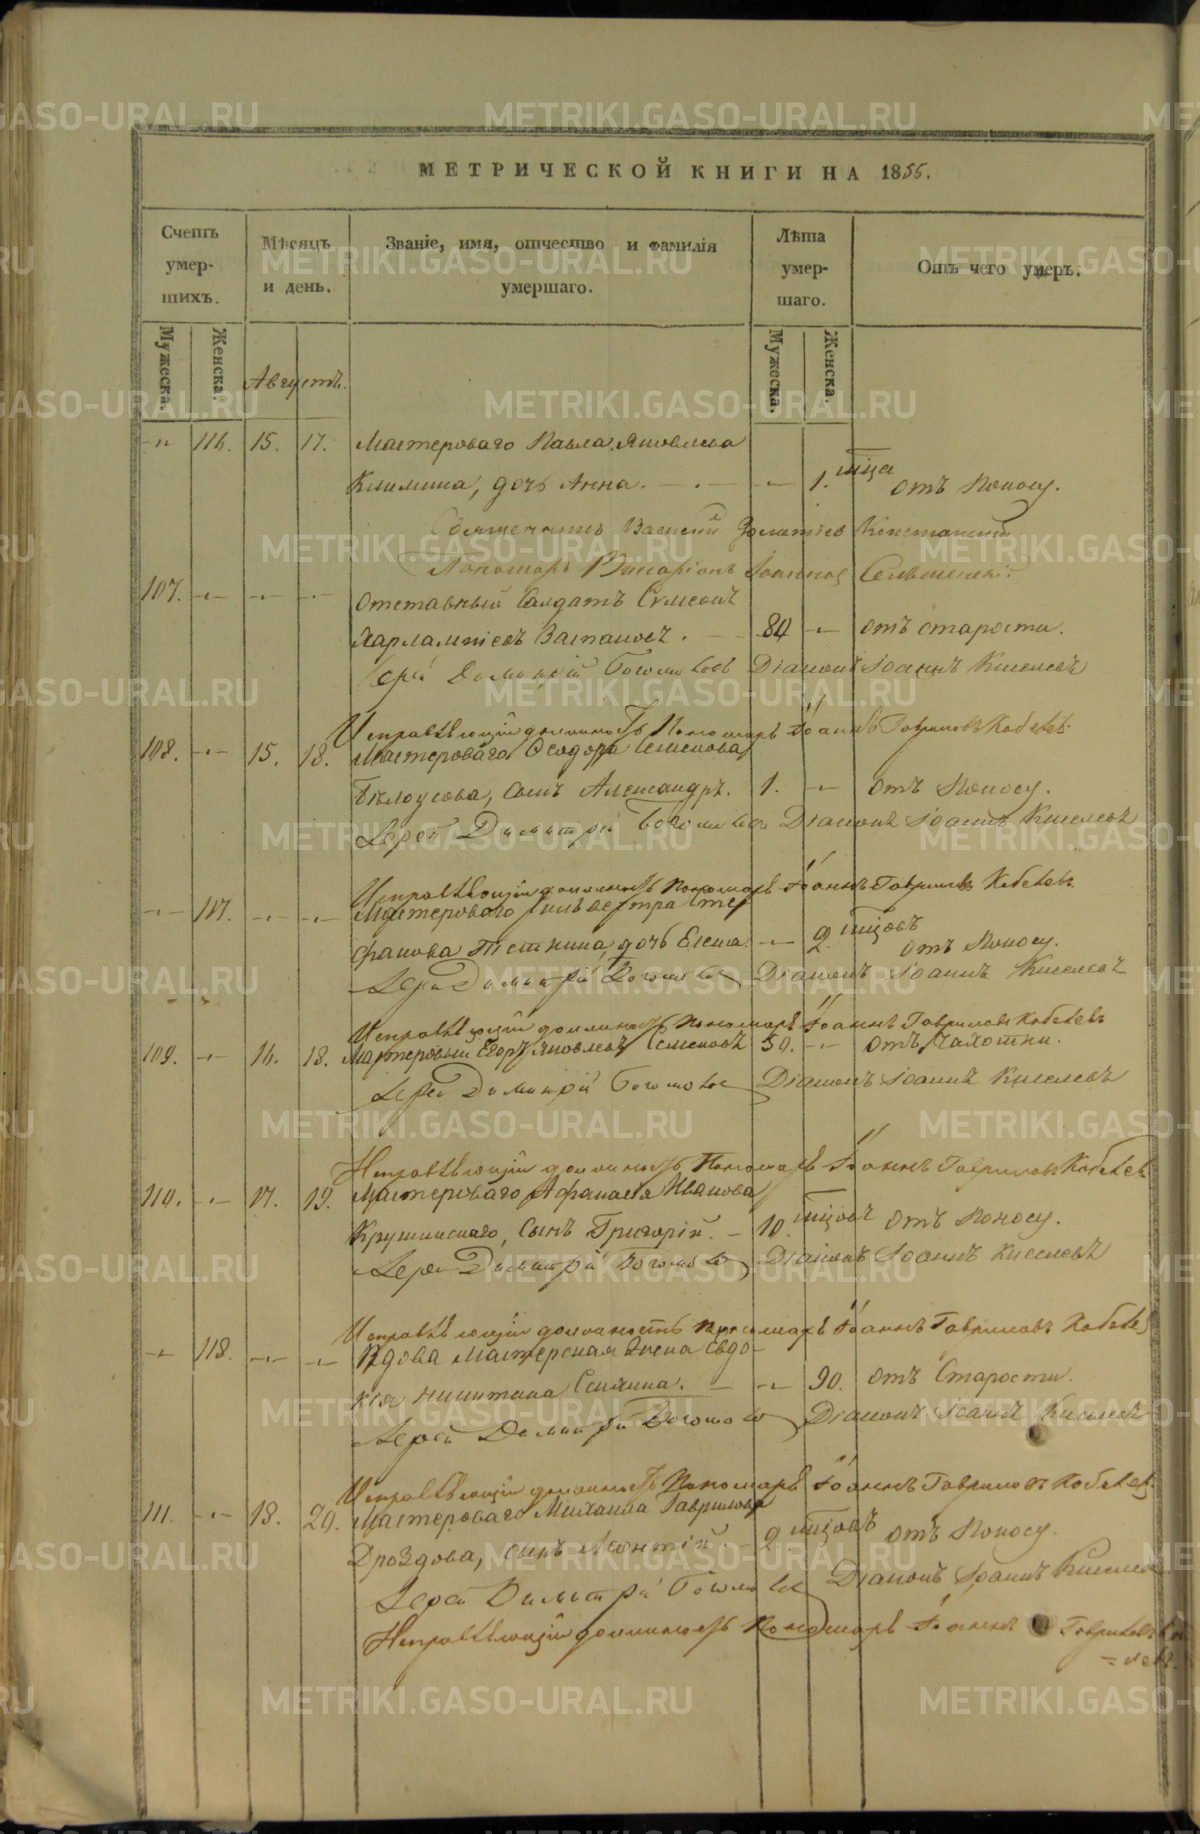 МЕТРИЧЕСКОЙ КНИГИ НА 1855.
Счетъ умер-шихъ.
Мѣсяцъ и день.
Званіе, имя, отчество и фамилія умершаго.
Лѣта умер-шаго.
Отъ чего умеръ.
Мужеска.
Женска.
Августъ.
Мужеска.
Женска.
-"- 116. 15. 17. Мастероваго Павла Яковлева
Климина, дочь Анна. - - 1. мѣсца отъ поносу.
Священникъ Василій Константинъ
Пономарь Іоанновъ
107. -"- -"- -"- Отставный Солдатъ Сѵмеонъ
Харлампіевъ . - 84 -"- отъ старости.
Іерей Димитрій Боголюбовъ Діаконъ Іоаннъ Киселевъ
Исправляющій должность Пономаря Іоаннъ Гавриловъ Кобелевъ
108. -"- 15. 18. Мастероваго Ѳеодора Семенова
Бѣлоусова, сынъ Александръ. 1. -"- отъ поносу.
Іерей Димитрій Боголюбовъ Діаконъ Іоаннъ Киселевъ
Исправляющій должность Пономаря Іоаннъ Гавриловъ Кобелевъ
-"- 117. -"- -"- Мастероваго Сильвестра Сте
фанова дочь Елена. -"- 2. мѣсцовъ отъ поносу.
Іерей Димитрій Боголюбовъ Діаконъ Іоаннъ Киселевъ
Исправляющій должность Пономаря Іоаннъ Гавриловъ Кобелевъ
109. -"- 16. 18. Мастеровый Егоръ Яковлевъ Семеновъ 50. -"- отъ чахотки.
Іерей Димитрій Боголюбовъ Діаконъ Іоаннъ Киселевъ
Исправляющій должность Пономаря Іоаннъ Гавриловъ Кобелевъ
110. -"- 17. 19. Мастероваго Афанасія Иванова
Крушинскаго, сынъ Григорій. - 10. мѣсцовъ отъ поносу.
Іерей Димитрій Боголюбовъ Діаконъ Іоаннъ Киселевъ
Исправляющій должность Пономаря Іоаннъ Гавриловъ Кобелевъ
-"- 118. -"- -"- Вдова мастерская жена Евдо-
кія Никитина . - -"- 90. отъ Старости.
Іерей Димитрій Боголюбовъ Діаконъ Іоаннъ Киселевъ
Исправляющій должность Пономаря Іоаннъ Гавриловъ Кобелевъ
111. -"- 18. 20. Мастероваго Михаила Гаврилова
Дроздова, сынъ Леонтій. - 2 мѣсцовъ отъ поносу.
Іерей Димитрій Боголюбовъ Діаконъ Іоаннъ Киселевъ
Исправляющій должность Пономаря Іоаннъ Гавриловъ Ко
=белевъ.
METRIKI.GASO-URAL.RU